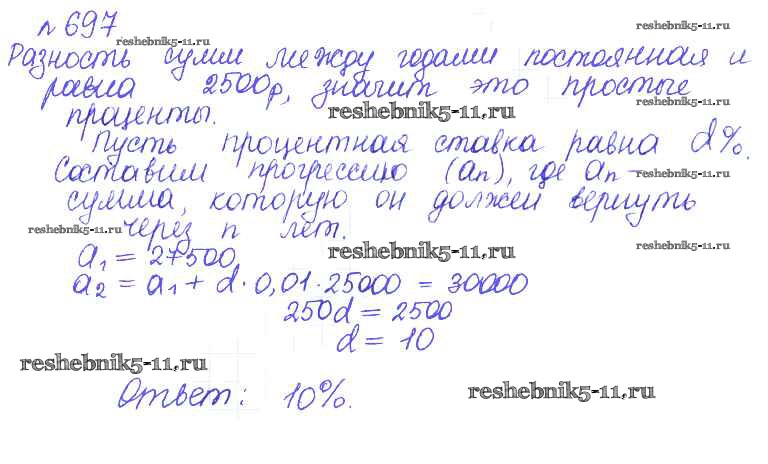 № 697
reshebnik5-11.ru
reshebnik5-11.ru
Разность сумм между годами постоянная и
равна 2500р, значит это простые
reshebnik5-11.ru
reshebnik5-11.ru
проценты.
Пусть процентная ставка равна d%.
Составим прогрессию (an), где an –
reshebnik5-11.ru
сумма, которую он должен вернуть
reshebnik5-11.ru
через n лет.
reshebnik5-11.ru
reshebnik5-11.ru
a₁ = 27500,
a₂ = a₁ + d · 0,01 · 25000 = 30000
250d = 2500
d = 10
reshebnik5-11.ru
Ответ: 10%.
reshebnik5-11.ru